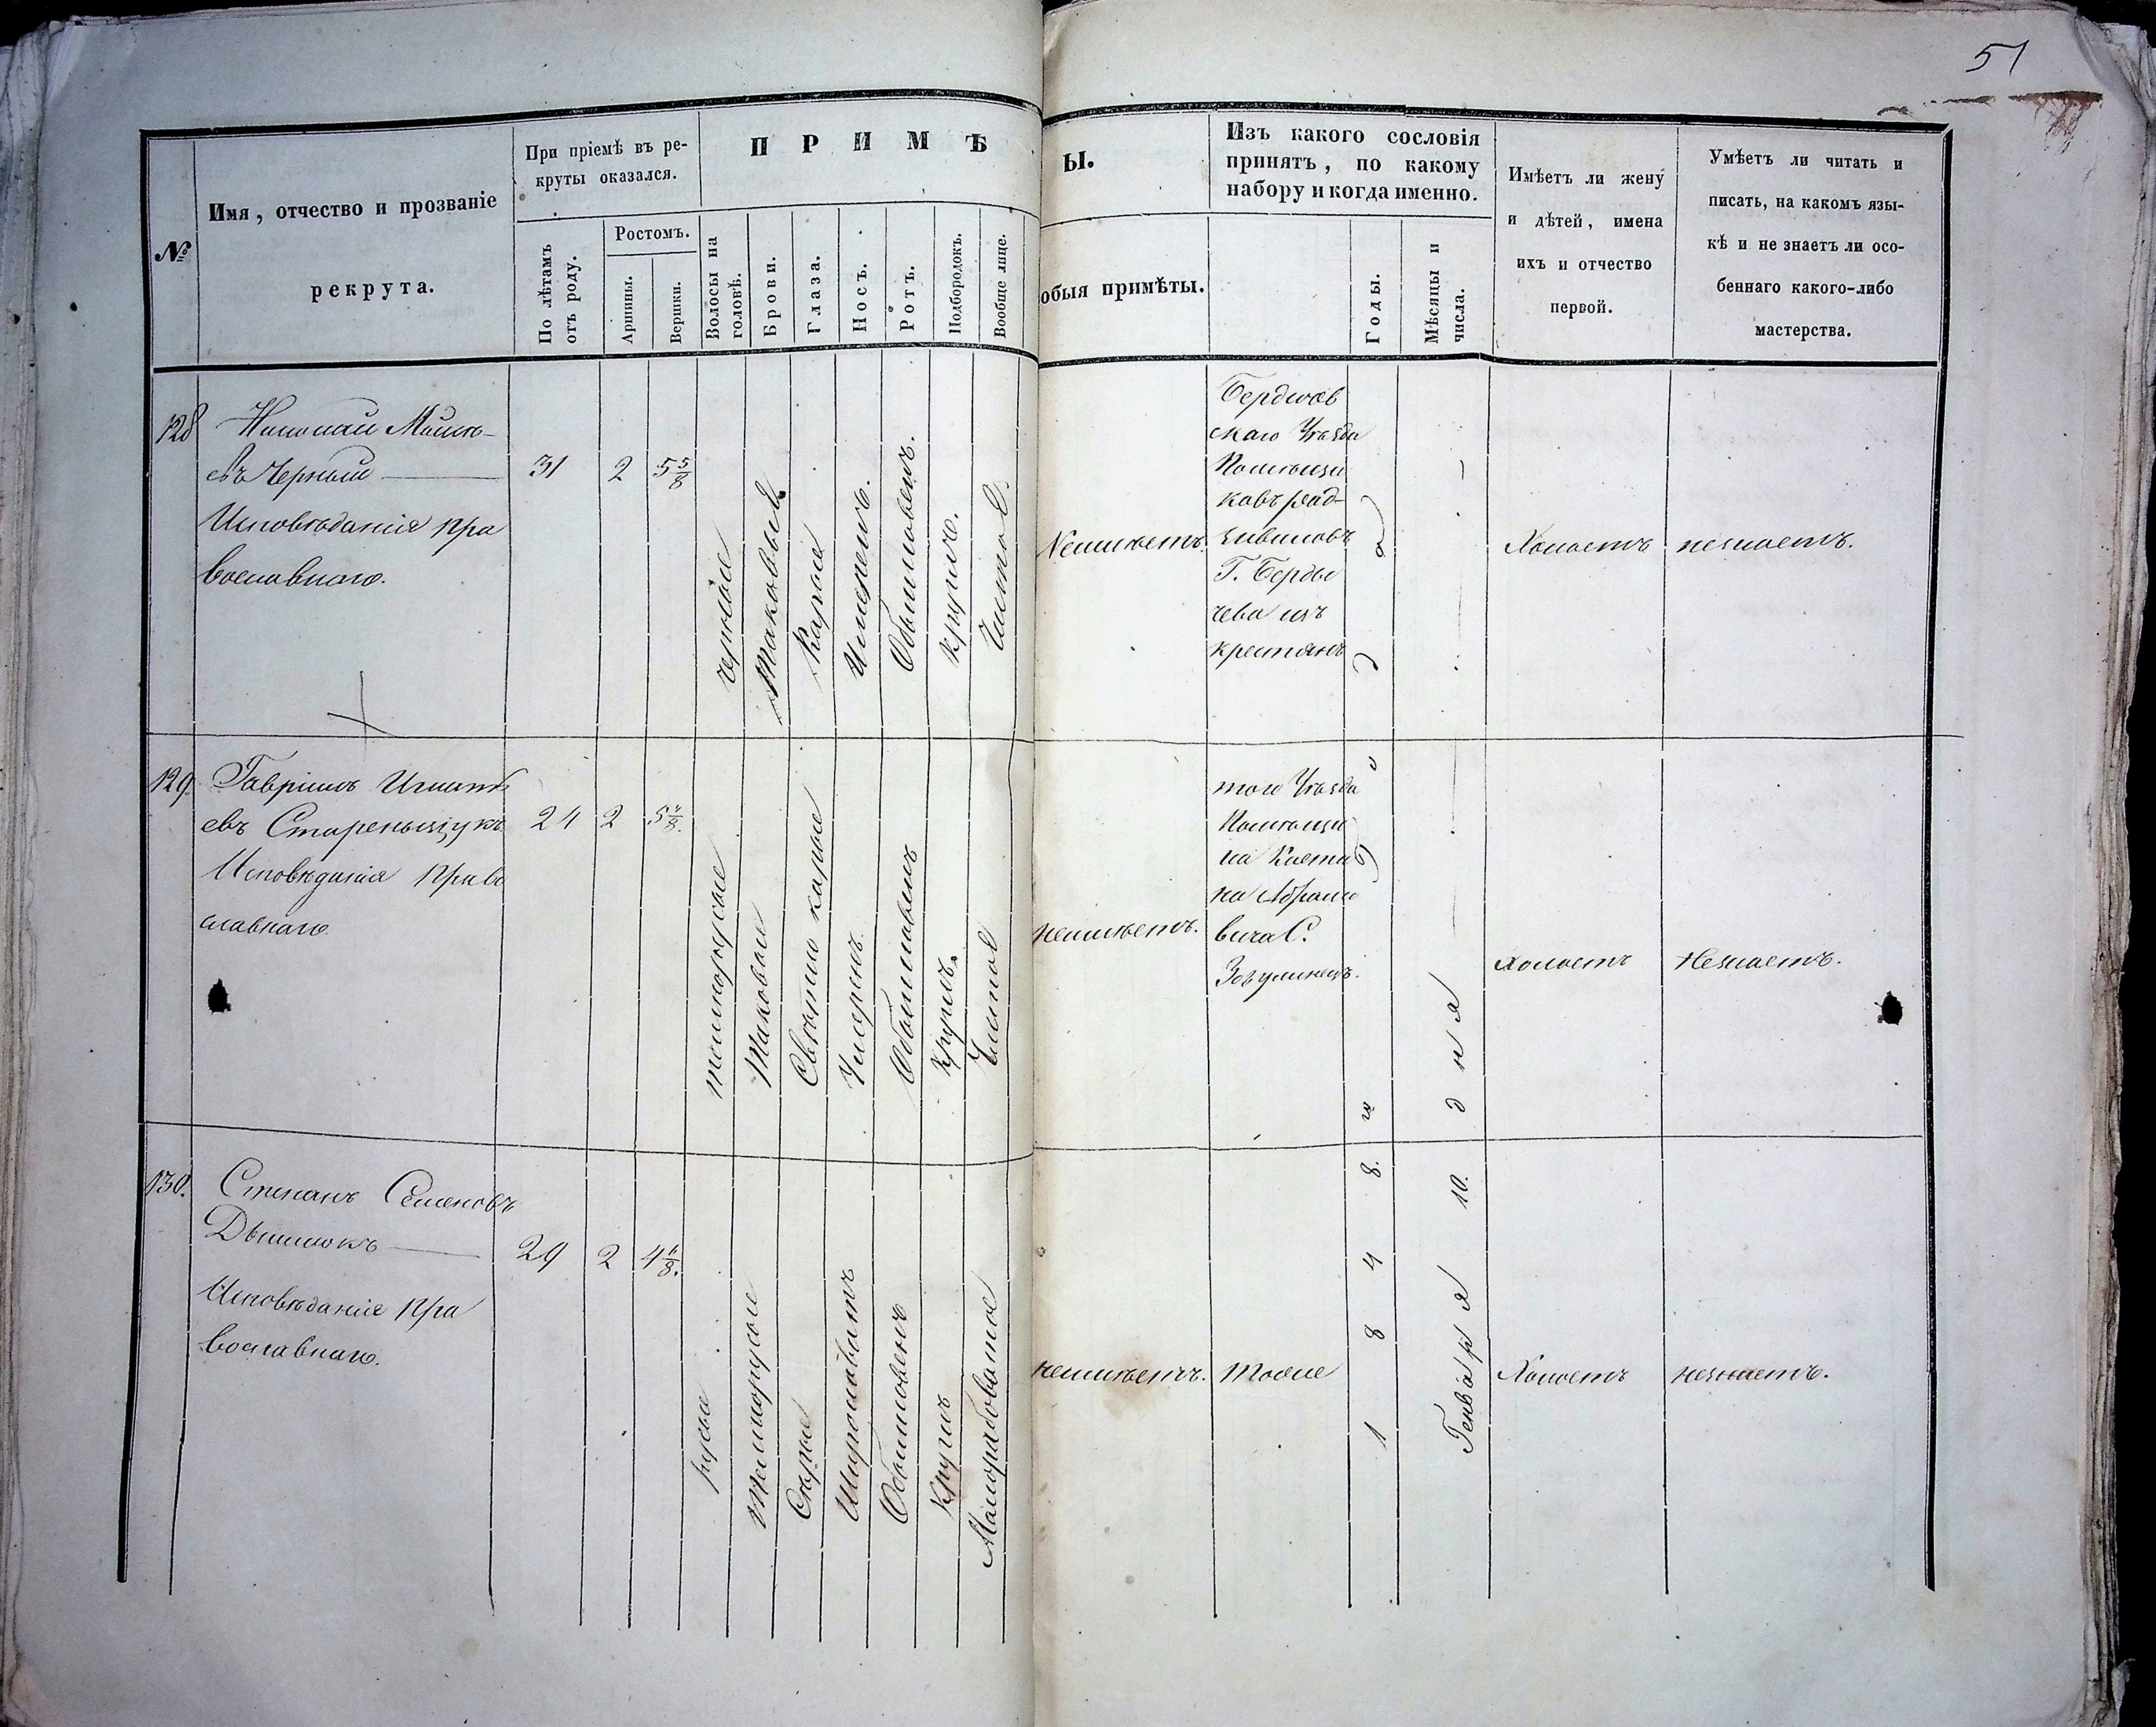 51
№
Имя, отчество и прозваніе
рекрута.
При пріемѣ въ ре-
круты оказался.
По лѣтамъ
отъ роду.
Ростомъ.
Аршины.
Вершки.
П Р И М Ѣ
Волосы на
головѣ.
Брови.
Глаза.
Носъ.
Ротъ.
Подбородокъ.
Вообще лице.
Ы.
обыя примѣты.
Изъ какого сословія
принятъ, по какому
набору и когда именно.
Годы.
Мѣсяцы и
числа.
Имѣетъ ли жену
и дѣтей, имена
ихъ и отчество
первой.
Умѣетъ ли читать и
писать, на какомъ язы-
кѣ и не знаетъ ли осо-
беннаго какого-либо
мастерства.
128
Николай
въ Черный
Исповѣданія Пра
вославнаго.
31
2
5 5/8
черные
Таковые
Каріе
Умеренъ.
Обыкновенъ.
Круглъ.
Чистое
Неимѣетъ
Бердичев
скаго Уѣзда
Помѣщи
ковъ Рад-
зивиловъ
Г. Берды
чева изъ
крестьянъ
Холостъ
незнаетъ.
129.
Гавріилъ Игнать
евъ Стареньщукъ
Исповѣданія Право
славнаго
24
2
темнорусые
Таковые
Свѣтло карые
Умеренъ
Обыкновенъ
Круглъ.
Чистое
Неимѣетъ.
того Уѣзда
Помѣщи
ка Кости
на Абрамо
вича С.
Зозулинецъ.
Холостъ
Незнаетъ.
130.
Степанъ Семеновъ
Исповѣданія Пра
вославнаго.
29
2
русые
Темнорусые
Серые
Широковатъ
Обыкновенъ
Круглъ
неимѣетъ.
Тоже
1 8 4 8. го
Генваря 10. дня
Холостъ
незнаетъ.